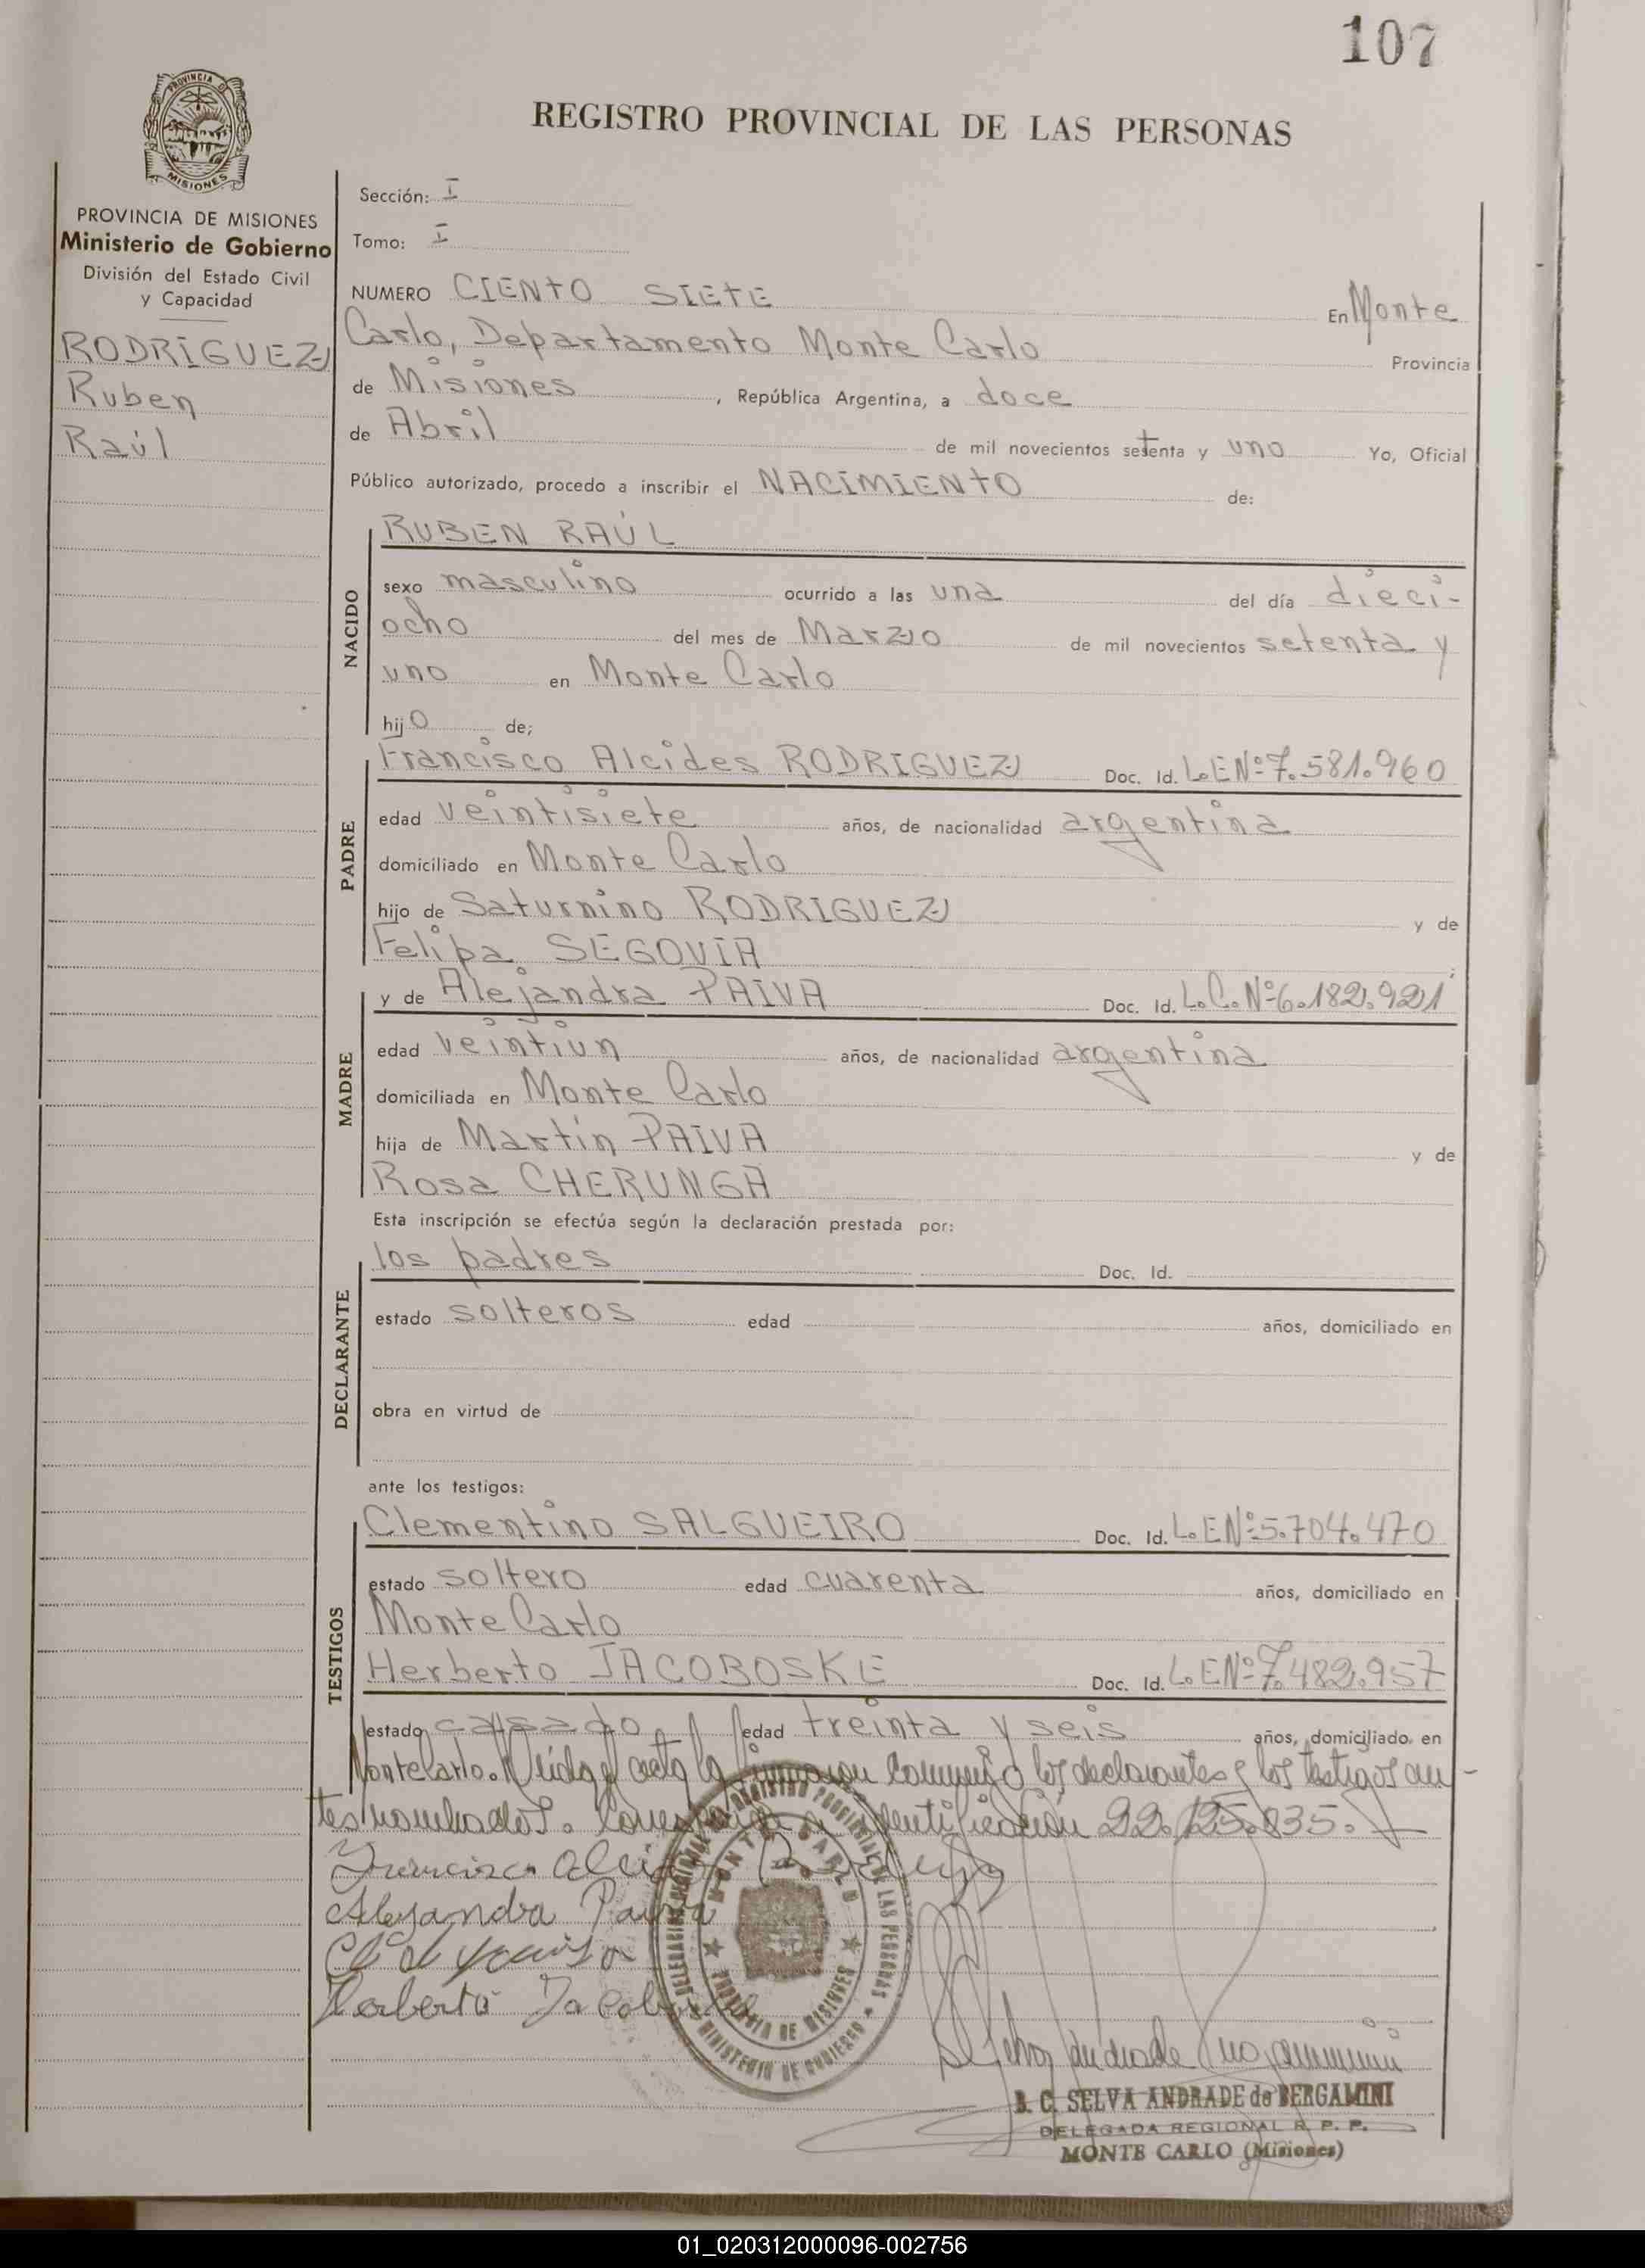 107
REGISTRO PROVINCIAL DE LAS PERSONAS
PROVINCIA DE
MISIONES
PROVINCIA DE MISIONES
Ministerio de Gobierno
División del Estado Civil
y Capacidad
RODRIGUEZ
Ruben
Raúl
Sección: I
Tomo: I
NUMERO CIENTO SIETE En Monte
Carlo, Departamento Monte Carlo Provincia
de Misiones, República Argentina, a doce
de Abril de mil novecientos setenta y uno Yo, Oficial
Público autorizado, procedo a inscribir el NACIMIENTO de:
NACIDO
RUBEN RAÚL
sexo masculino ocurrido a las una del día dieci-
ocho del mes de Marzo de mil novecientos setenta y
uno en Monte Carlo
hijo de;
PADRE
Francisco Alcides RODRIGUEZ Doc. Id. L.E Nº 7.581.960
edad veintisiete años, de nacionalidad argentina
domiciliado en Monte Carlo
hijo de Saturnino RODRIGUEZ y de
Felipa SEGOVIA
MADRE
y de Alejandra PAIVA Doc. Id. L.C. Nº 6.182.921
edad veintiun años, de nacionalidad argentina
domiciliada en Monte Carlo
hija de Martín PAIVA y de
Rosa CHERUNGA
Esta inscripción se efectúa según la declaración prestada por:
DECLARANTE
los padres Doc. Id.
estado solteros edad años, domiciliado en
obra en virtud de
ante los testigos:
TESTIGOS
Clementino SALGUEIRO Doc. Id. L.E Nº 5.704.470
estado soltero edad cuarenta años, domiciliado en
Monte Carlo
Herberto JACOBOSKE Doc. Id. L.E Nº 7.482.957
estado casado edad treinta y seis años, domiciliado en
Montecarlo. Leída el acta la firmaron conmigo los declarantes y los testigos an-
tes nombrados. identificación 22.125.035.
Francisco
Alejandra Paiva
Herberto
DELEGACION REGIONAL DEL REGISTRO PROVINCIAL DE LAS PERSONAS
MINISTERIO DE GOBIERNO
MONTE CARLO
PROVINCIA DE MISIONES
B. C. SELVA ANDRADE de BERGAMINI
DELEGADA REGIONAL R. P. P.
MONTE CARLO (Misiones)
01_020312000096-002756